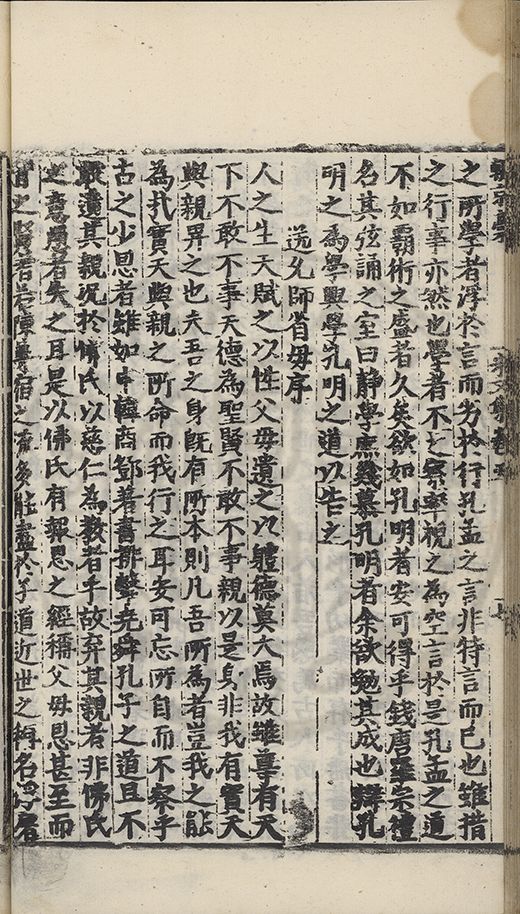 之所學者浮於言而劣於行孔孟之言非特言而已也雖措
之行事亦然也學者不之察率視之為空言於是孔孟之道
不如霸術之盛者久矣欲如孔明者安可得乎錢唐羅宗禮
名其弦誦之室曰靜學庶幾慕孔明者余欲勉其成也擇孔
明之為學與學孔明之道以告之
送允師省母序
人之生天賦之以性父母遺之以體德莫大焉故雖尊有天
下不敢不事天德為聖賢不敢不事親以是身非我有實天
與親畀之也夫吾之身既有所本則凡吾所為者豈我之能
為哉實天與親之所命而我行之耳安可忘所自而不察乎
古之少思者雖如申韓商鄧著書排擊堯舜孔子之道且不
敢遺其親況於佛氏以慈仁為教者乎故棄其親者非佛氏
之意愚者失之耳是以佛氏有報恩之經稱父母恩甚至而
昔之賢者若陳尊宿之流多能盡於子道近世之梅名